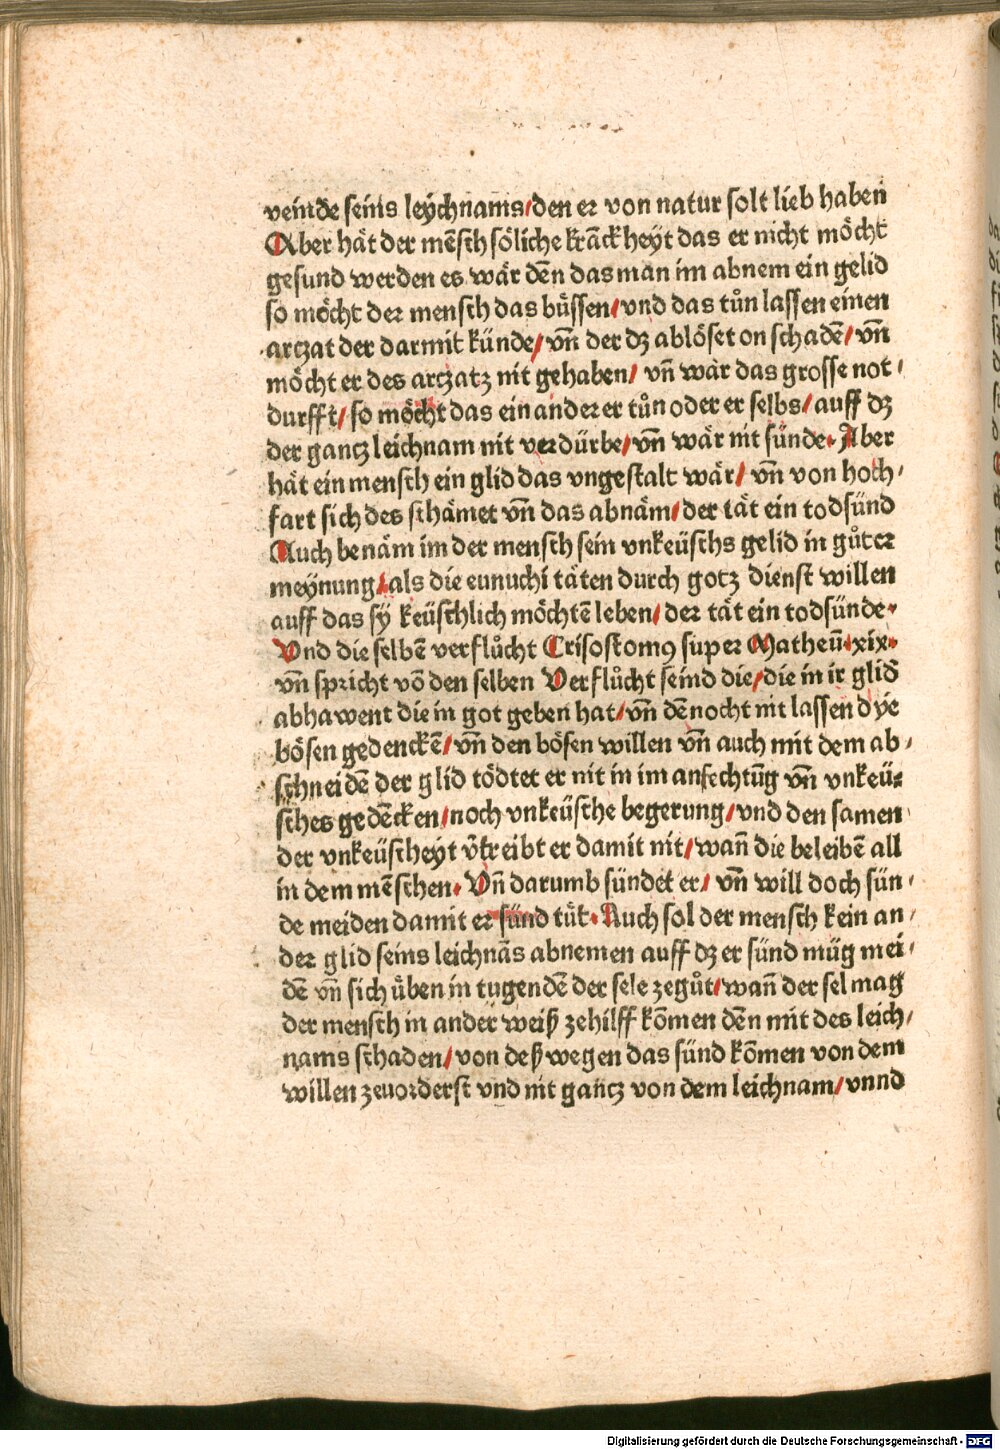 veinde seins leychnams/den er von natur solt lieb haben
Aber hät der mēsch söliche krāckheyt das er nicht möcht
gesund werden es wär dēn das man im abnem ein gelid
so möcht der mensch das büssen/vnd das tůn lassen einen
artzat der darmit künde/vn̄ der dz ablöset on schadē/vn̄
möcht er des artzatz nit gehaben/ vn̄ wär das grosse not⸗
durfft/so möcht das ein anderer tůn oder er selbs/auff dz
der gantz leichnam nit verdürbe/vn̄ wär nit sünde. Aber
hät ein mensch ein glid das vngestalt wär/ vn̄ von hoch⸗
fart sich des schämet vn̄ das abnäm/der tät ein todsünd
Auch benäm im der mensch sein vnkeüschs gelid in gůter
meynung/als die eunuchi täten durch gotz dienst willen
auff das sy keüschlich möchtē leben/der tät ein todsünde.
Vnd die selbē verflůcht Crisostomꝰ super Matheū.xix.
vn̄ spricht vō den selben Verflůcht seind die/die in ir glid
abhawent die in got geben hat/vn̄ dēnocht nit lassen dye
bösen gedenckē/vn̄ den bösen willen vn̄ auch mit dem ab⸗
schneidē der glid tödtet er nit in im anfechtūg vn̄ vnkeü⸗
sches gedēcken/noch vnkeüsche begerung/vnd den samen
der vnkeüscheyt v̄treibt er damit nit/wan̄ die beleibē all
in dem mēschen. Vn̄ darumb sündet er/ vn̄ will doch sün⸗
de meiden damit er sünd tüt. Auch sol der mensch kein an⸗
der glid seins leichnās abnemen auff dz er sünd müg mei⸗
dē vn̄ sich üben in tugendē der sele zegůt/wan̄ der sel mag
der mensch in ander weiß zehilff kōmen dēn mit des leich⸗
nams schaden/von deßwegen das sünd kōmen von dem
willen zeuorderst vnd nit gantz von dem leichnam/vnnd
Digitalisierung gefördert durch die Deutsche Forschungsgemeinschaft - DFG